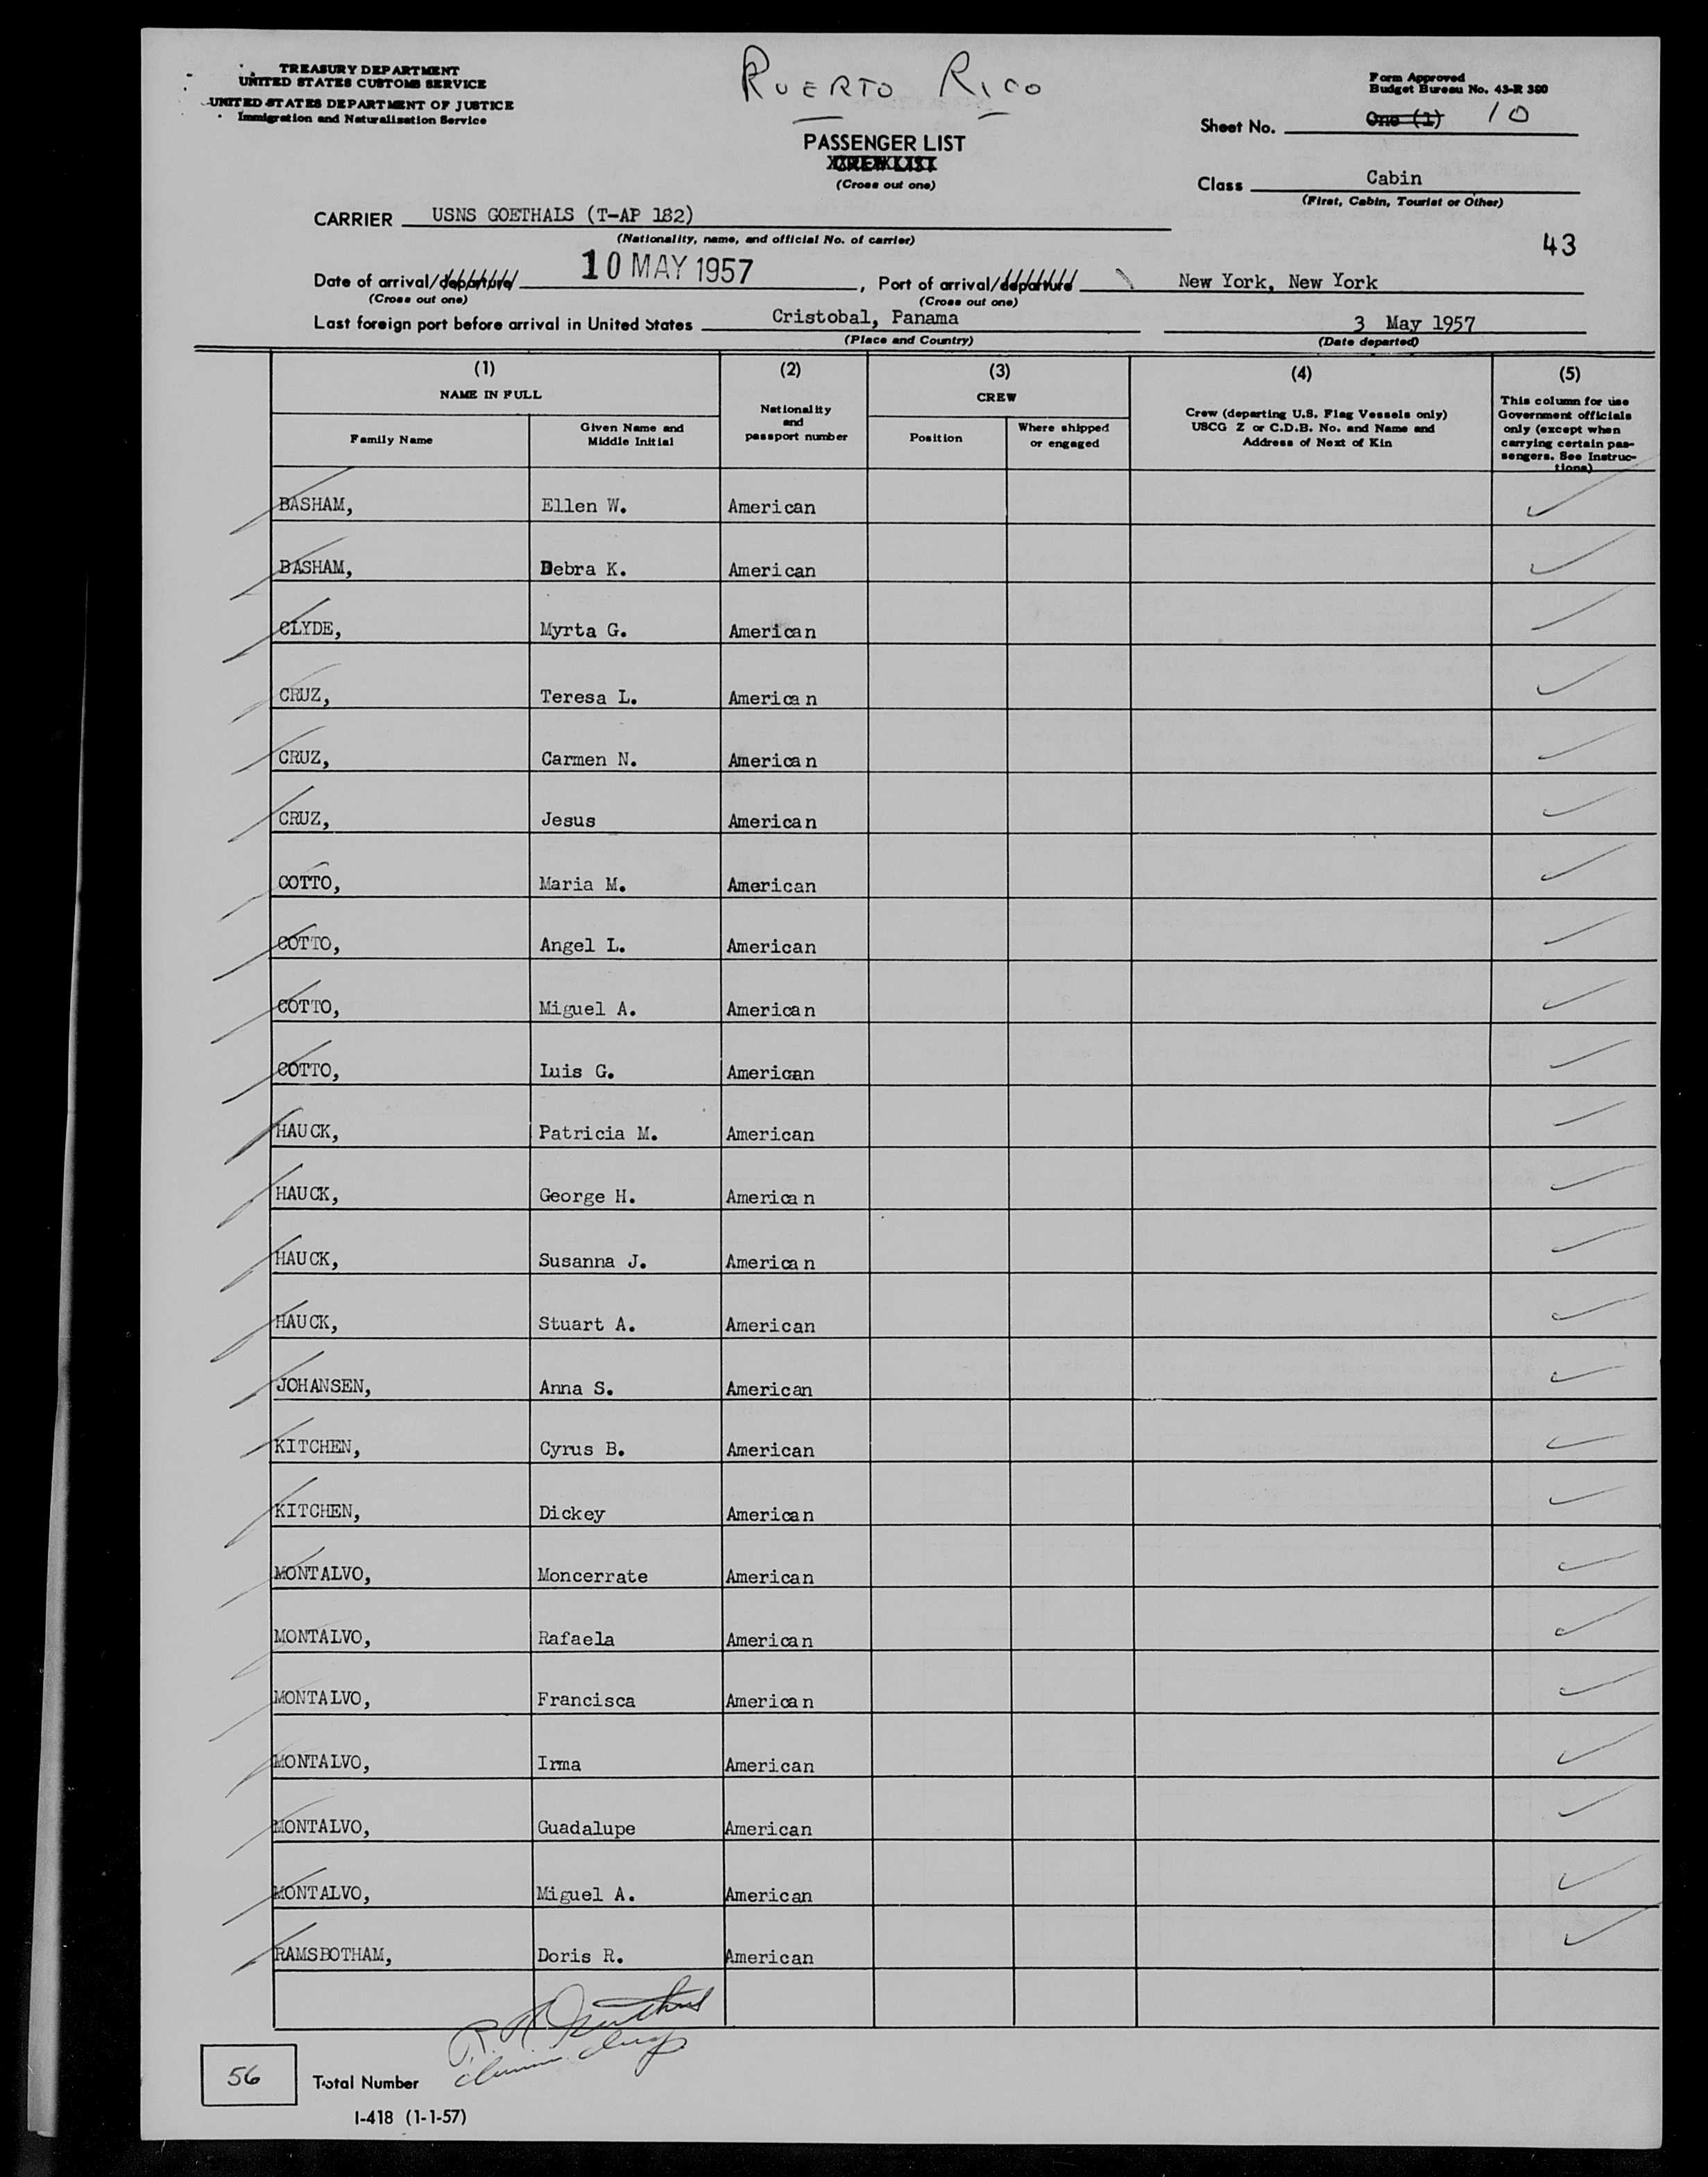 TREASURY DEPARTMENT
UNITED STATES CUSTOMS SERVICE
UNITED STATES DEPARTMENT OF JUSTICE
Immigration and Naturalization Service
PUERTO RICO
Form Approved
Budget Bureau No. 43-R 380
Sheet No. One (1) 10
PASSENGER LIST
CREW LIST
(Cross out one)
Class Cabin
(First, Cabin, Tourist or Other)
CARRIER USNS GOETHALS (T-AP 182)
(Nationality, name, and official No. of carrier)
43
Date of arrival/departure 10 MAY 1957, Port of arrival/departure New York, New York
(Cross out one) (Cross out one)
Last foreign port before arrival in United States Cristobal, Panama 3 May 1957
(Place and Country) (Date departed)
(1) (2) (3) (4) (5)
NAME IN FULL
Family Name
Given Name and
Middle Initial
Nationality
and
passport number
CREW
Position
Where shipped
or engaged
Crew (departing U.S. Flag Vessels only)
USCG Z or C.D.B. No. and Name and
Address of Next of Kin
This column for use
Government officials
only (except when
carrying certain pas-
sengers. See Instruc-
tions)
BASHAM, Ellen W. American
BASHAM, Debra K. American
CLYDE, Myrta G. American
CRUZ, Teresa L. American
CRUZ, Carmen N. American
CRUZ, Jesus American
COTTO, Maria M. American
COTTO, Angel L. American
COTTO, Miguel A. American
COTTO, Luis G. American
HAUCK, Patricia M. American
HAUCK, George H. American
HAUCK, Susanna J. American
HAUCK, Stuart A. American
JOHANSEN, Anna S. American
KITCHEN, Cyrus B. American
KITCHEN, Dickey American
MONTALVO, Moncerrate American
MONTALVO, Rafaela American
MONTALVO, Francisca American
MONTALVO, Irma American
MONTALVO, Guadalupe American
MONTALVO, Miguel A. American
RAMSBOTHAM, Doris R. American
56 Total Number
I-418 (1-1-57)